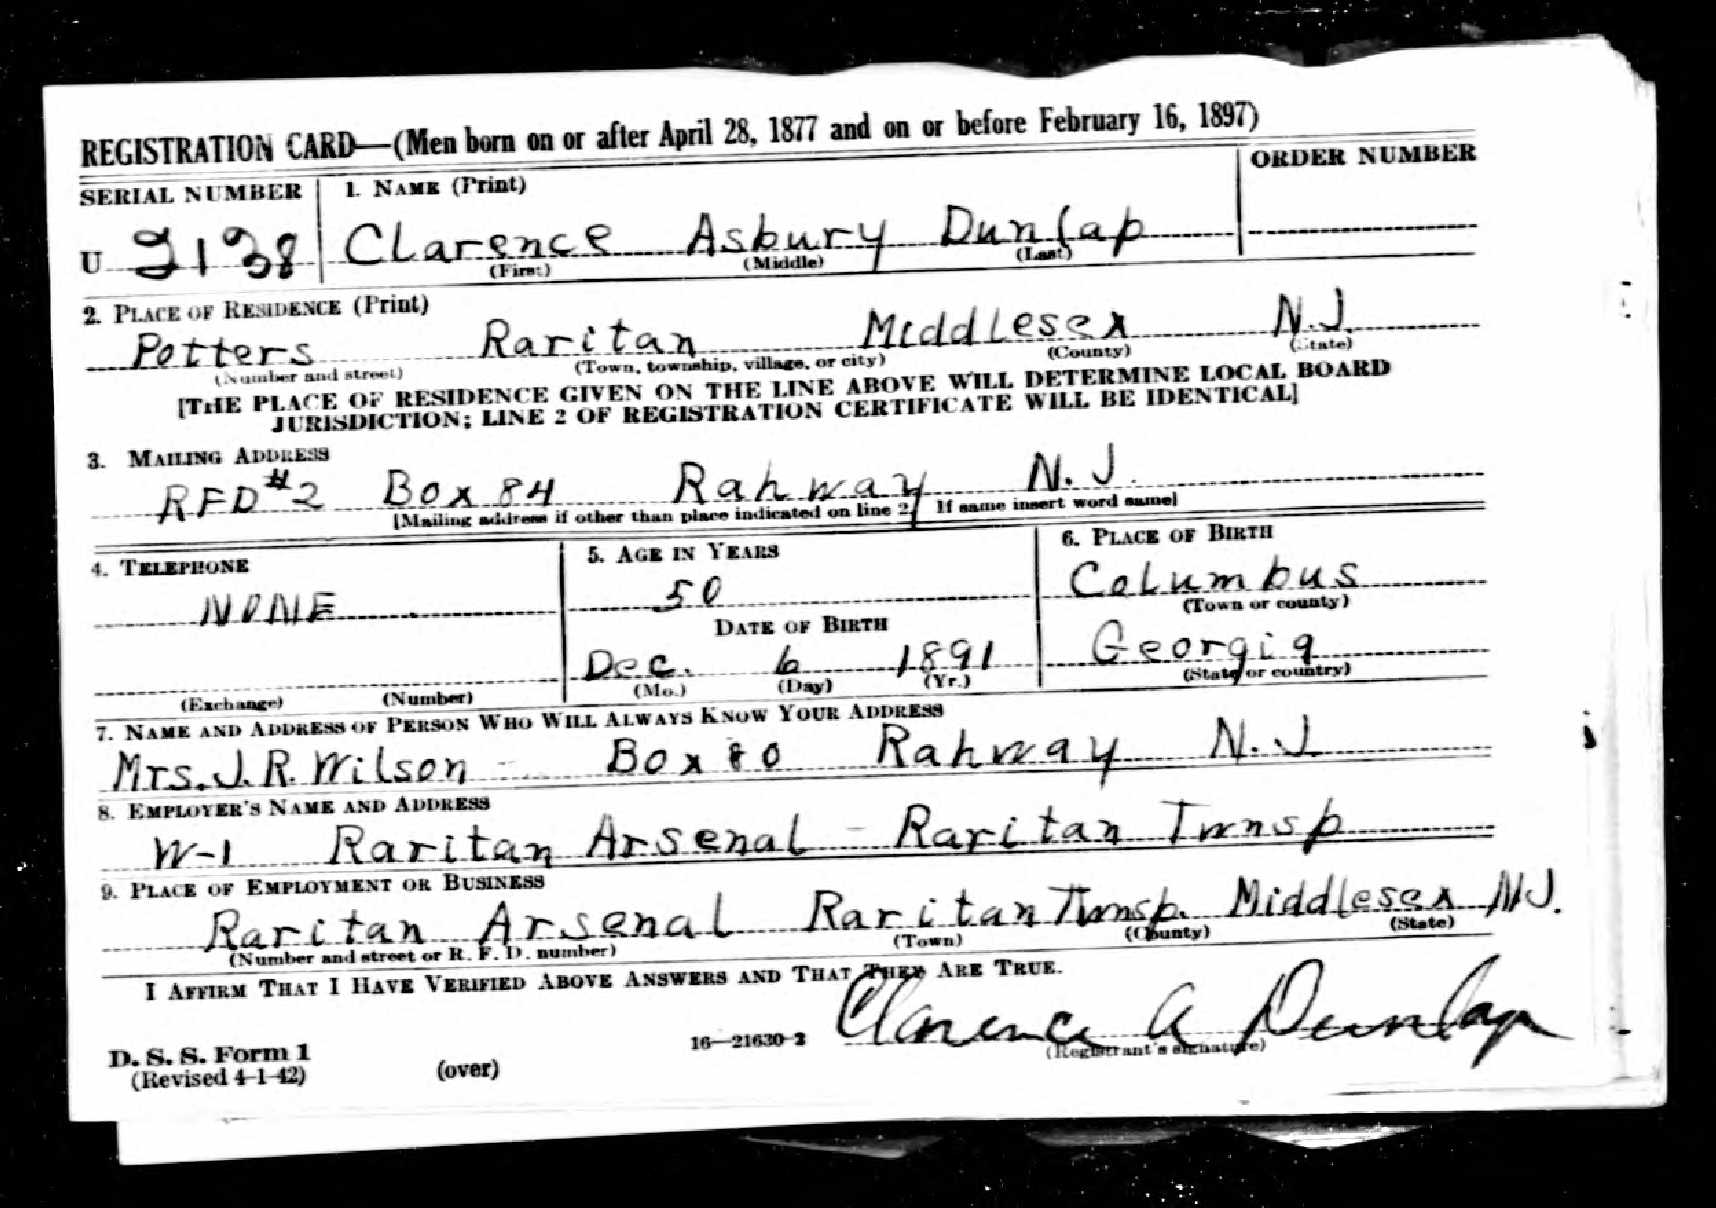 REGISTRATION CARD—(Men born on or after April 28, 1877 and on or before February 16, 1897)
SERIAL NUMBER 1. NAME (Print) ORDER NUMBER
U 2138 Clarence Asbury Dunlap
(First) (Middle) (Last)
2. PLACE OF RESIDENCE (Print)
Potters Raritan Middlesex N.J.
(Number and street) (Town, township, village, or city) (County) (State)
[THE PLACE OF RESIDENCE GIVEN ON THE LINE ABOVE WILL DETERMINE LOCAL BOARD
JURISDICTION; LINE 2 OF REGISTRATION CERTIFICATE WILL BE IDENTICAL]
3. MAILING ADDRESS
RFD #2 Box 84 Rahway N.J.
[Mailing address if other than place indicated on line 2. If same insert word same]
4. TELEPHONE 5. AGE IN YEARS 6. PLACE OF BIRTH
NONE 50 Columbus
(Town or county)
DATE OF BIRTH
Dec. 6 1891 Georgia
(Exchange) (Number) (Mo.) (Day) (Yr.) (State or country)
7. NAME AND ADDRESS OF PERSON WHO WILL ALWAYS KNOW YOUR ADDRESS
Mrs. J. R. Wilson - Box 80 Rahway N.J.
8. EMPLOYER'S NAME AND ADDRESS
W-1 Raritan Arsenal - Raritan Twnsp
9. PLACE OF EMPLOYMENT OR BUSINESS
Raritan Arsenal Raritan Twnsp. Middlesex NJ.
(Number and street or R. F. D. number) (Town) (County) (State)
I AFFIRM THAT I HAVE VERIFIED ABOVE ANSWERS AND THAT THEY ARE TRUE.
Clarence A Dunlap
D. S. S. Form 1 16—21630-2 (Registrant's signature)
(Revised 4-1-42) (over)